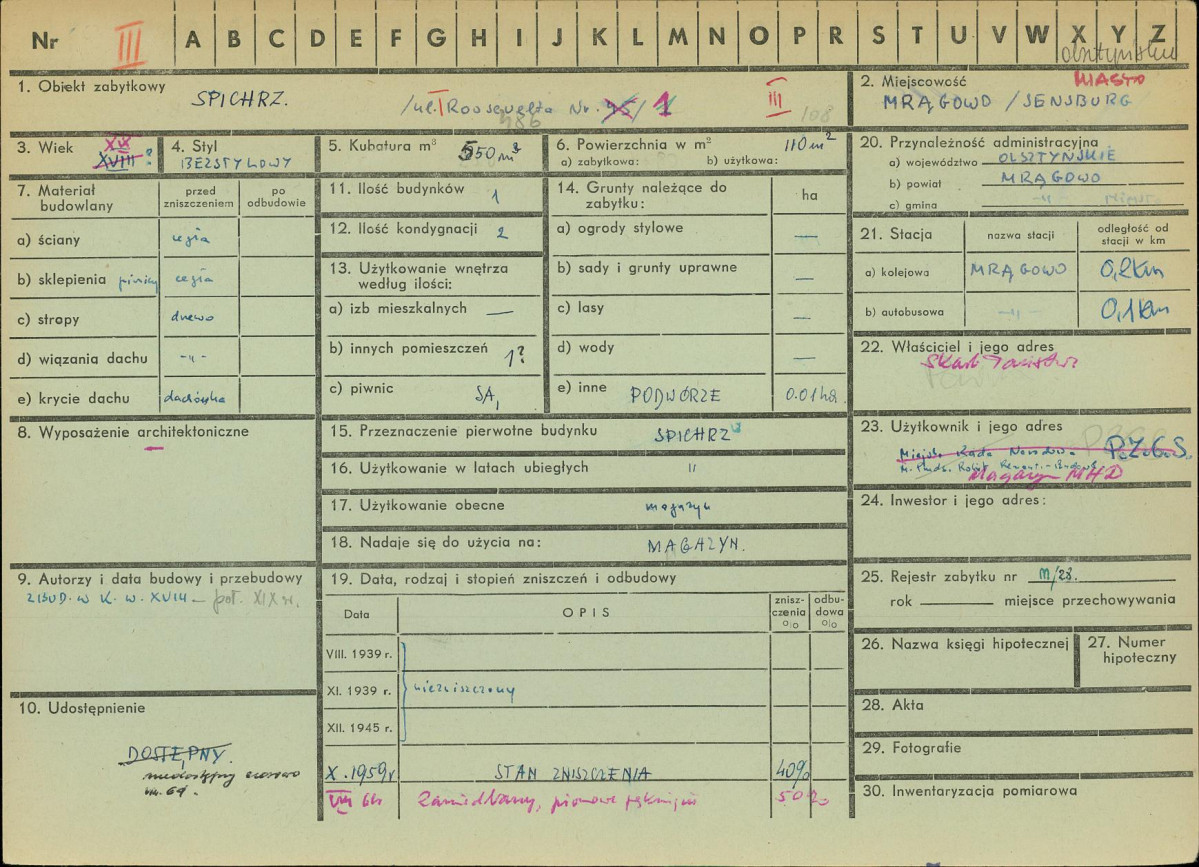 Nr III A B C D E F G H I J K L M N O P R S T U V W X Y Z
1. Obiekt zabytkowy SPICHRZ.
/ul. Roosevelta Nr. 1 III 108
2. Miejscowość MIASTO
MRĄGOWO /SENSBURG
3. Wiek XX
XVIII ?
4. Styl
BEZSTYLOWY
5. Kubatura m³ 550 m³
6. Powierzchnia w m² 110 m²
a) zabytkowa: b) użytkowa:
20. Przynależność administracyjna
a) województwo OLSZTYŃSKIE
b) powiat MRĄGOWO
c) gmina -"-
7. Materiał budowlany
przed zniszczeniem
po odbudowie
a) ściany cegła
b) sklepienia piwnicy cegła
c) stropy drewo
d) wiązania dachu -"-
e) krycie dachu dachówka
11. Ilość budynków 1
12. Ilość kondygnacji 2
13. Użytkowanie wnętrza
według ilości:
a) izb mieszkalnych —
b) innych pomieszczeń 1?
c) piwnic SĄ
14. Grunty należące do
zabytku:
ha
a) ogrody stylowe —
b) sady i grunty uprawne —
c) lasy —
d) wody —
e) inne PODWÓRZE 0.01 ha
21. Stacja
nazwa stacji
odległość od
stacji w km
a) kolejowa MRĄGOWO 0,2 km
b) autobusowa -"- 0,1 km
22. Właściciel i jego adres
Skarb Państwa
8. Wyposażenie architektoniczne
—
15. Przeznaczenie pierwotne budynku SPICHRZ
16. Użytkowanie w latach ubiegłych "
17. Użytkowanie obecne magazyn
18. Nadaje się do użycia na: MAGAZYN.
23. Użytkownik i jego adres
Miejska Rada Narodowa P.Z.G.S.
Magazyn MHD
24. Inwestor i jego adres:
9. Autorzy i data budowy i przebudowy
ZBUD. W K. W. XVIII — poł. XIX w.
19. Data, rodzaj i stopień zniszczeń i odbudowy
Data
OPIS
znisz-
czenia
%
odbu-
dowa
%
VIII. 1939 r.
XI. 1939 r. niezniszczony
XII. 1945 r.
X. 1959 r STAN ZNISZCZENIA 40%
VIII 64 Zaniedbany, pionowe pęknięcia 50%
25. Rejestr zabytku nr M/28.
rok miejsce przechowywania
26. Nazwa księgi hipotecznej
27. Numer
hipoteczny
10. Udostępnienie
DOSTĘPNY.
niedostępny
28. Akta
29. Fotografie
30. Inwentaryzacja pomiarowa